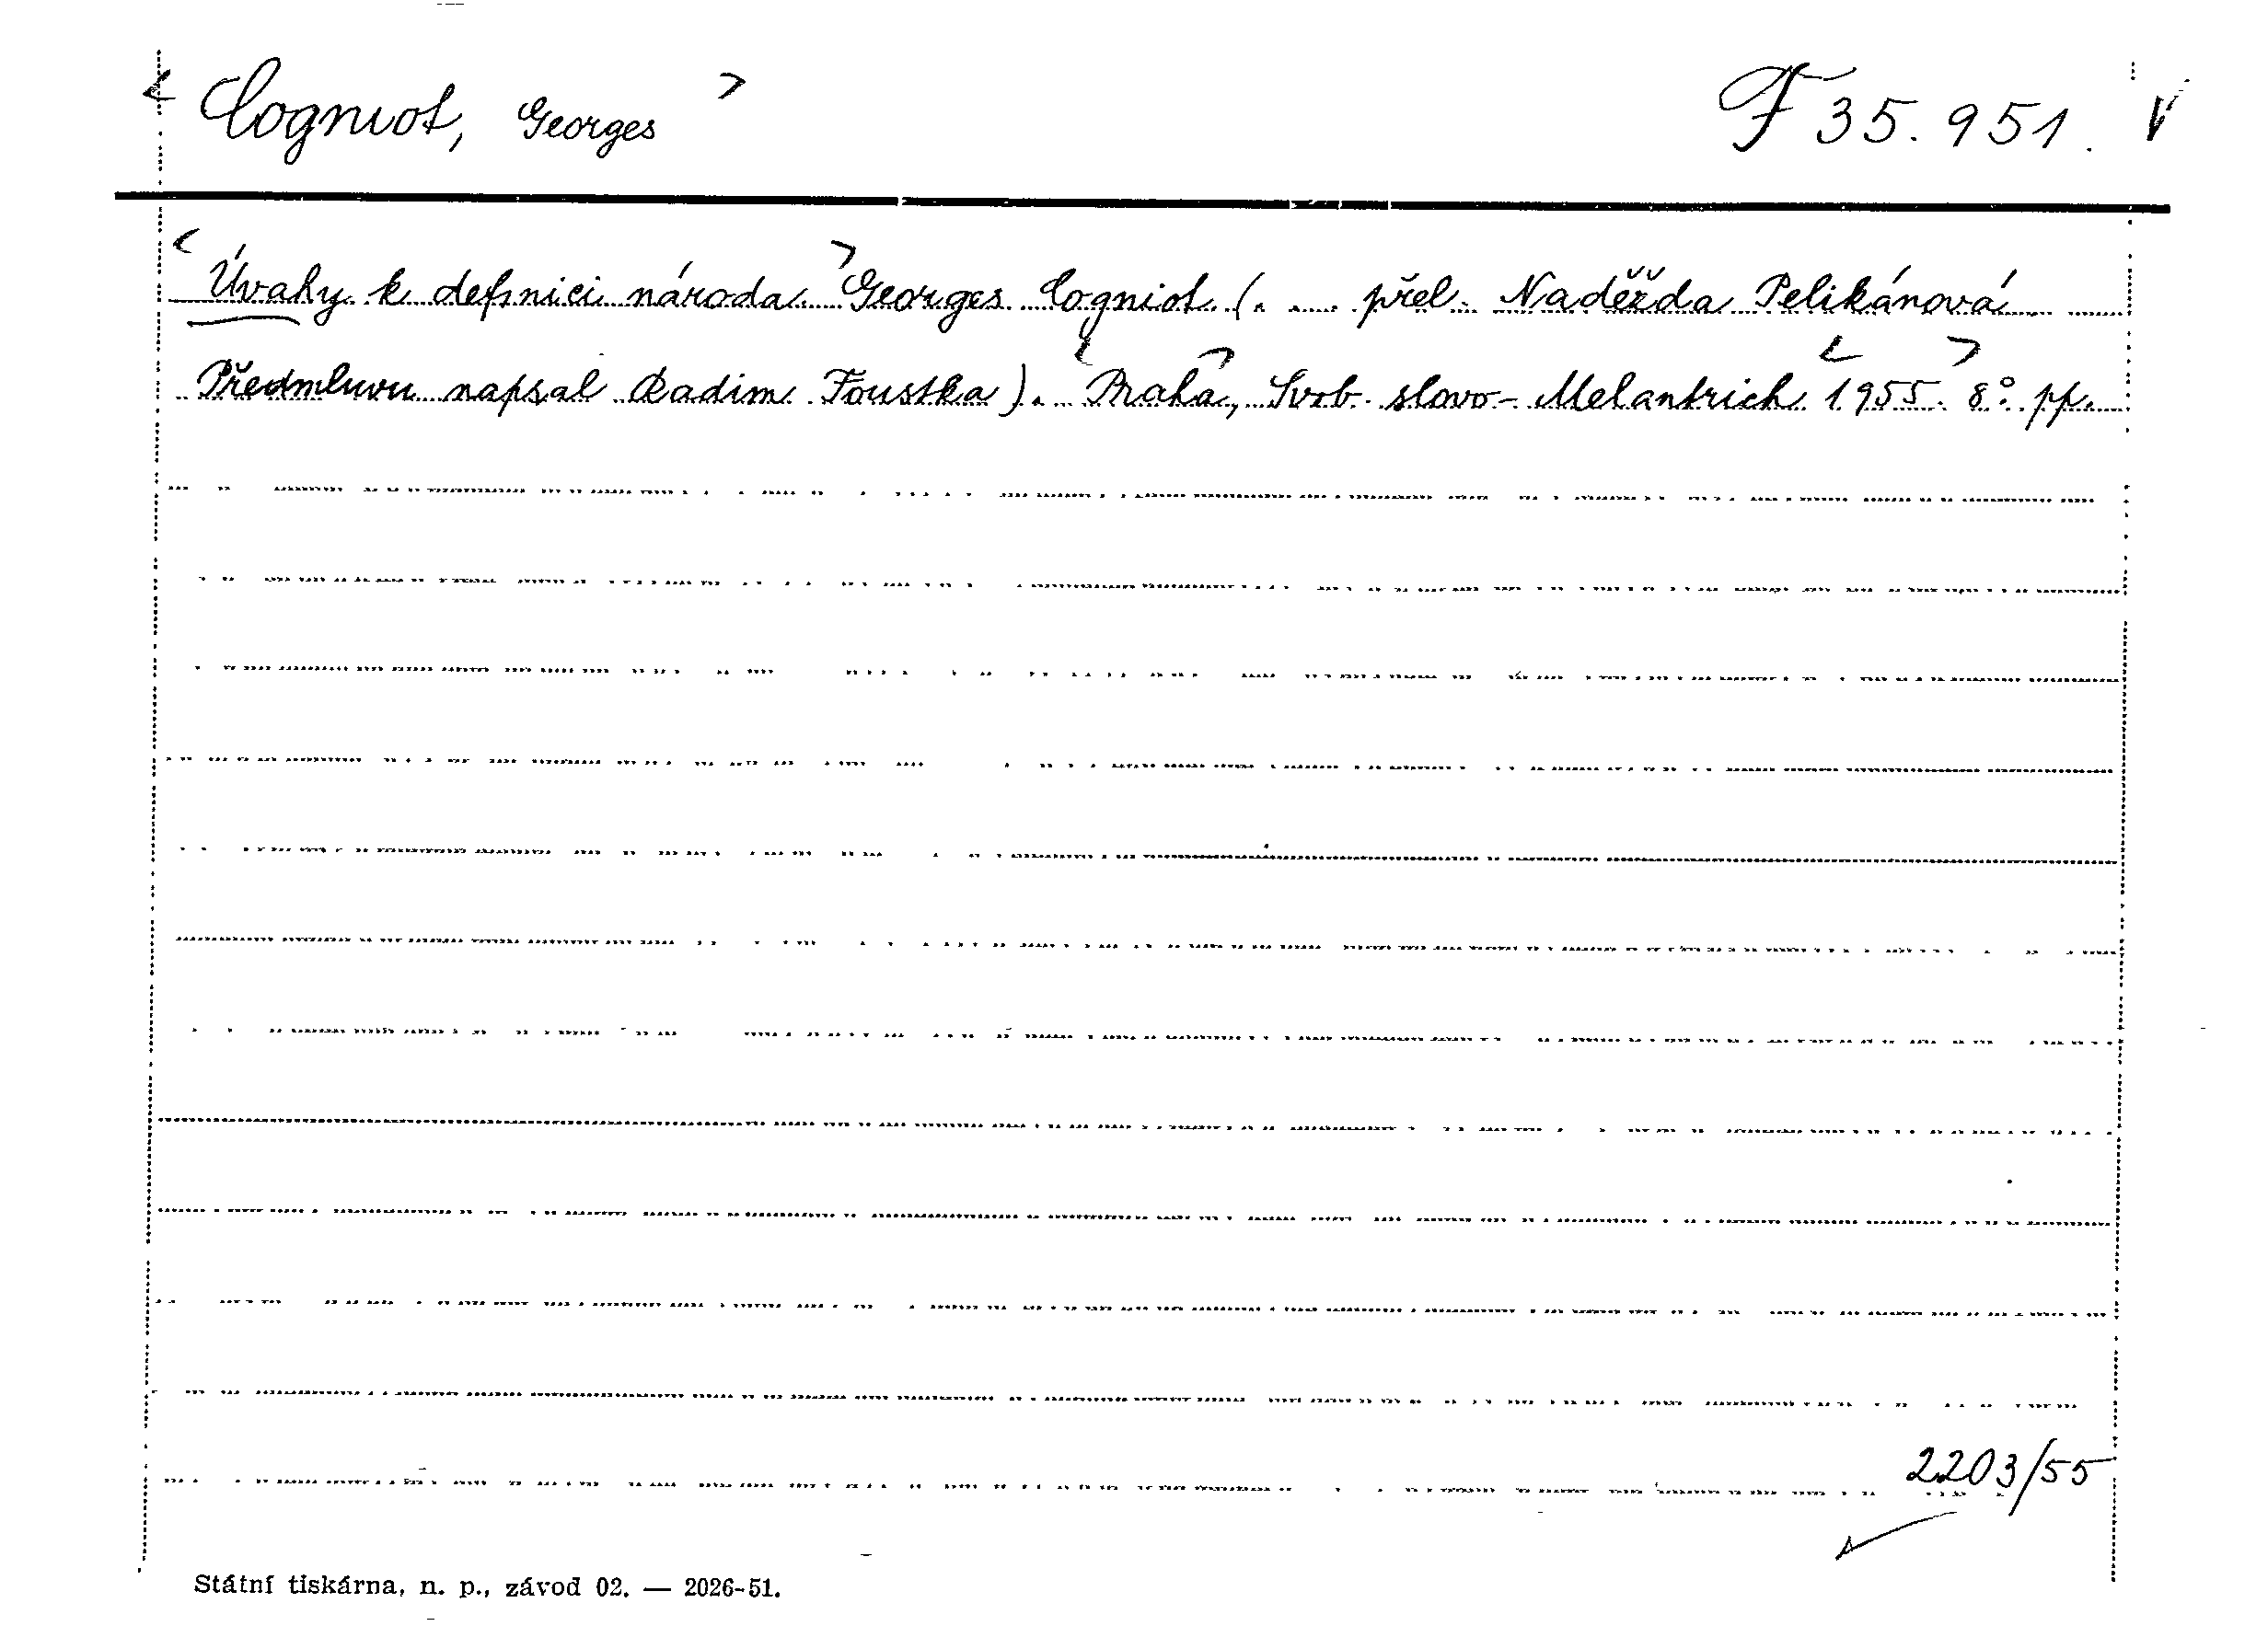 < Cogniot, Georges > F 35.951. V
< Úvahy k definici národa. > Georges Cogniot. (. ... přel. Naděžda Pelikánová
Předmluvu napsal Radim Foustka). < Praha >, Svob. slovo - Melantrich < 1955. > 8° pp.
2203/55
Státní tiskárna, n. p., závod 02. — 2026-51.